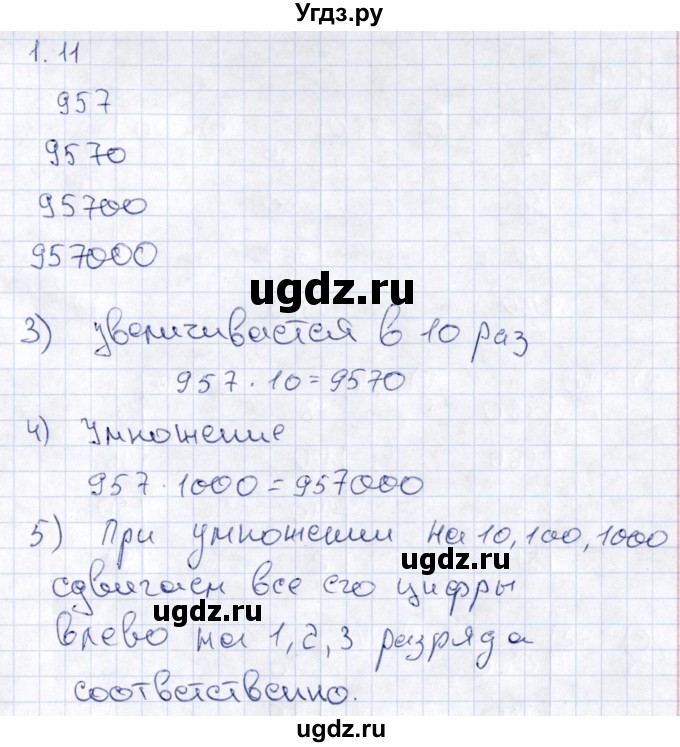 Угдз.ру
1.11
957
9570
95700
957000
ugdz.ru
3) увеличивается в 10 раз
957 · 10 = 9570
4) Умножение
957 · 1000 = 957000
5) При умножении на 10, 100, 1000
ugdz.ru
сдвигаем все его цифры
ugdz.ru
влево на 1, 2, 3 разряда
соответственно.
ugdz.ru